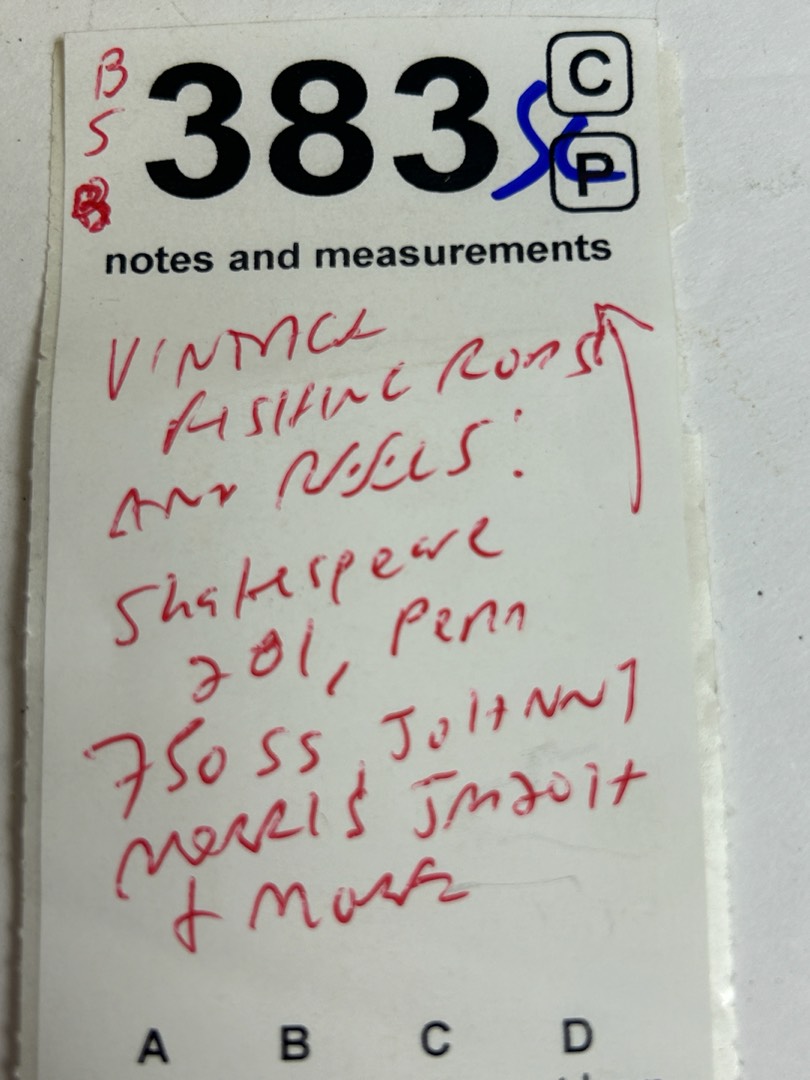 B
S
383 SC
C
P
notes and measurements
VINTAGE
FISHING RODS
AND REELS:
Shakespeare
201, Penn
750 SS, JOHNNY
MORRIS JM20H
+ MORE
A B C D